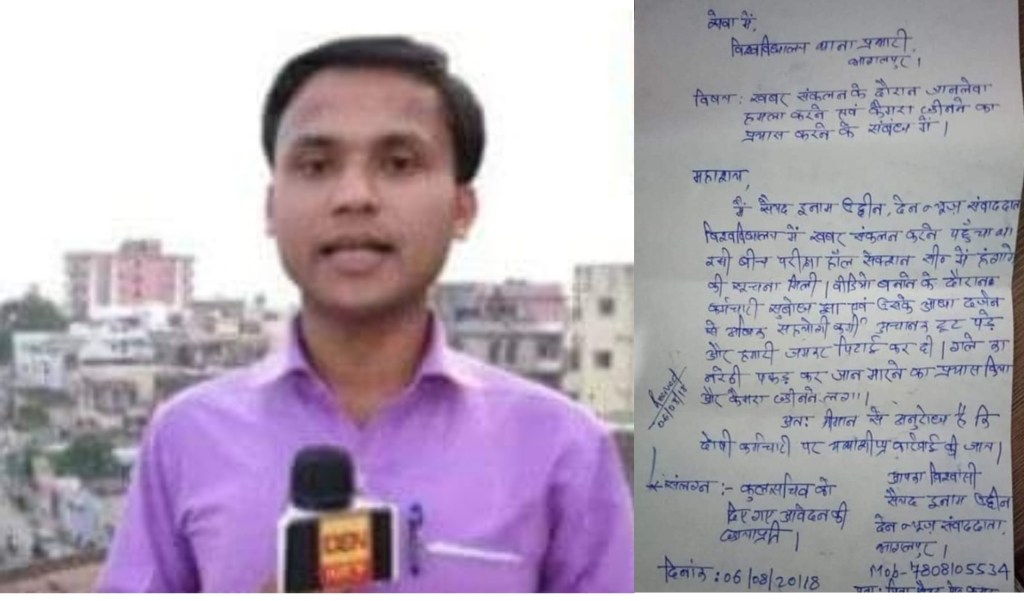 DEN
सेवा में,
विश्वविद्यालय थाना प्रभारी,
भागलपुर।
विषय : खबर संकलन के दौरान जानलेवा
हमला करने एवं कैमरा छीनने का
प्रयास करने के संबंध में।
महाशय,
मैं सैयद इनाम उद्दीन, देन न्यूज़ संवाददाता
विश्वविद्यालय में खबर संकलन करने पहुँचा था
इसी बीच परीक्षा हॉल सेक्शन तीन में हंगामे
की सूचना मिली। वीडियो बनाने के दौरान
कर्मचारी झा एवं उसके आधा दर्जन
से अधिक सहयोगी कर्मी अचानक टूट पड़े
और हमारी जमकर पिटाई कर दी। गले का
नरेठी पकड़ कर जान मारने का प्रयास किया
और कैमरा छीनने लगा।
अतः श्रीमान से अनुरोध है कि
दोषी कर्मचारी पर कार्रवाई की जाय।
Received
06/08/18
संलग्न :- कुलसचिव को
दिए गए आवेदन की
छायाप्रति।
आपका विश्वासी
सैयद इनाम उद्दीन
देन न्यूज़ संवाददाता,
भागलपुर।
Mob-7808105534
दिनांक : 06/08/2018